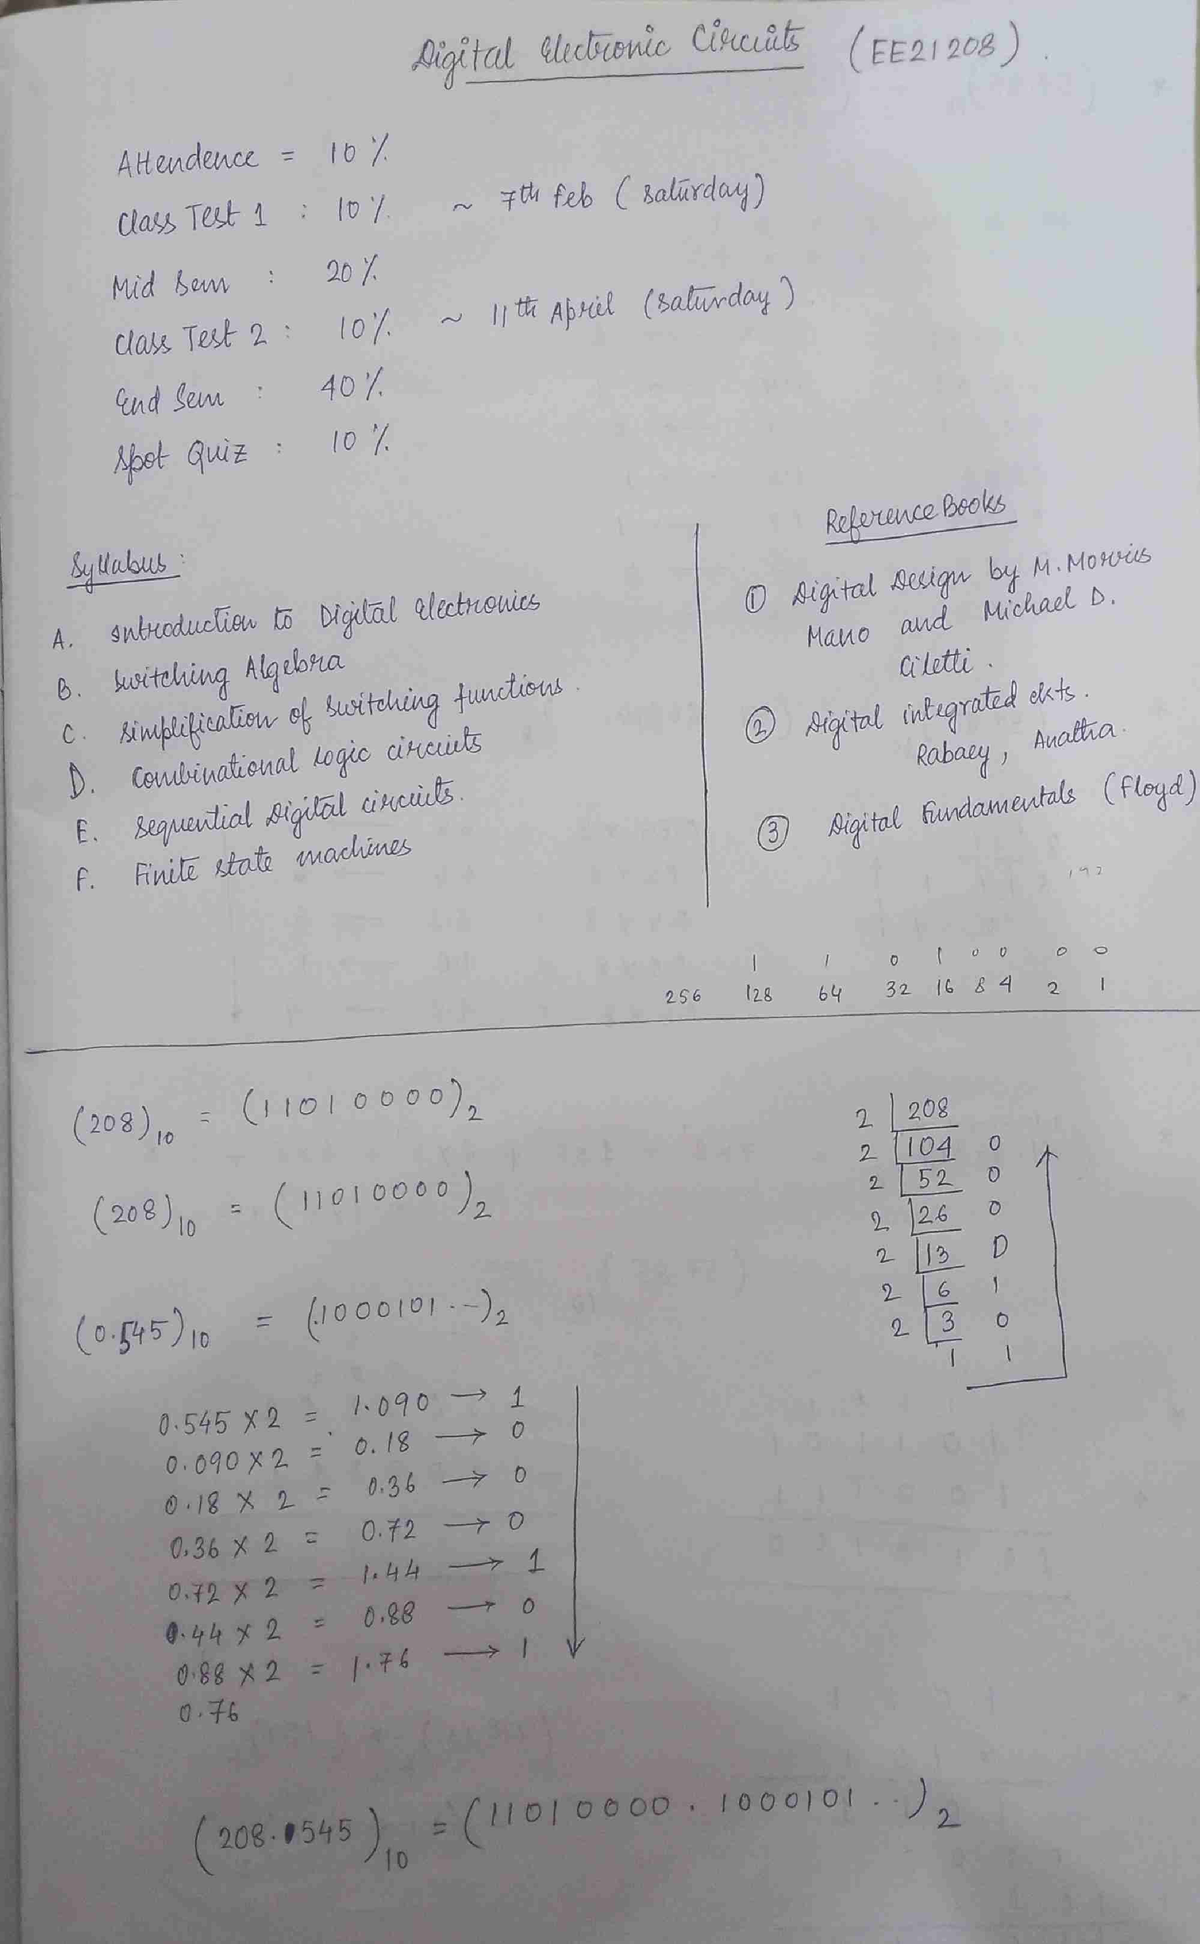 Digital Electronic Circuits (EE21208)
Attendence = 10 %
Class Test 1 : 10 % ~ 7th Feb (Saturday)
Mid Sem : 20 %
Class Test 2 : 10 % ~ 11th April (Saturday)
End Sem : 40 %
Spot Quiz : 10 %
Syllabus :
A. Introduction to Digital Electronics
B. Switching Algebra
C. Simplification of Switching functions.
D. Combinational Logic circuits
E. Sequential Digital circuits.
F. Finite state machines
Reference Books
① Digital Design by M. Morris
Mano and Michael D.
Ciletti.
② Digital integrated ckts.
Rabaey, Anatha.
③ Digital Fundamentals (Floyd)
192
1 1 0 1 0 0 0 0
256 128 64 32 16 8 4 2 1
(208)10 = (11010000)2
(208)10 = (11010000)2
(0.545)10 = (.1000101..-)2
2 208
2 104 0
2 52 0
2 26 0
2 13 0
2 6 1
2 3 0
1 1
0.545 × 2 = 1.090 → 1
0.090 × 2 = 0.18 → 0
0.18 × 2 = 0.36 → 0
0.36 × 2 = 0.72 → 0
0.72 × 2 = 1.44 → 1
0.44 × 2 = 0.88 → 0
0.88 × 2 = 1.76 → 1
0.76
(208.545)10 = (11010000.1000101..)2